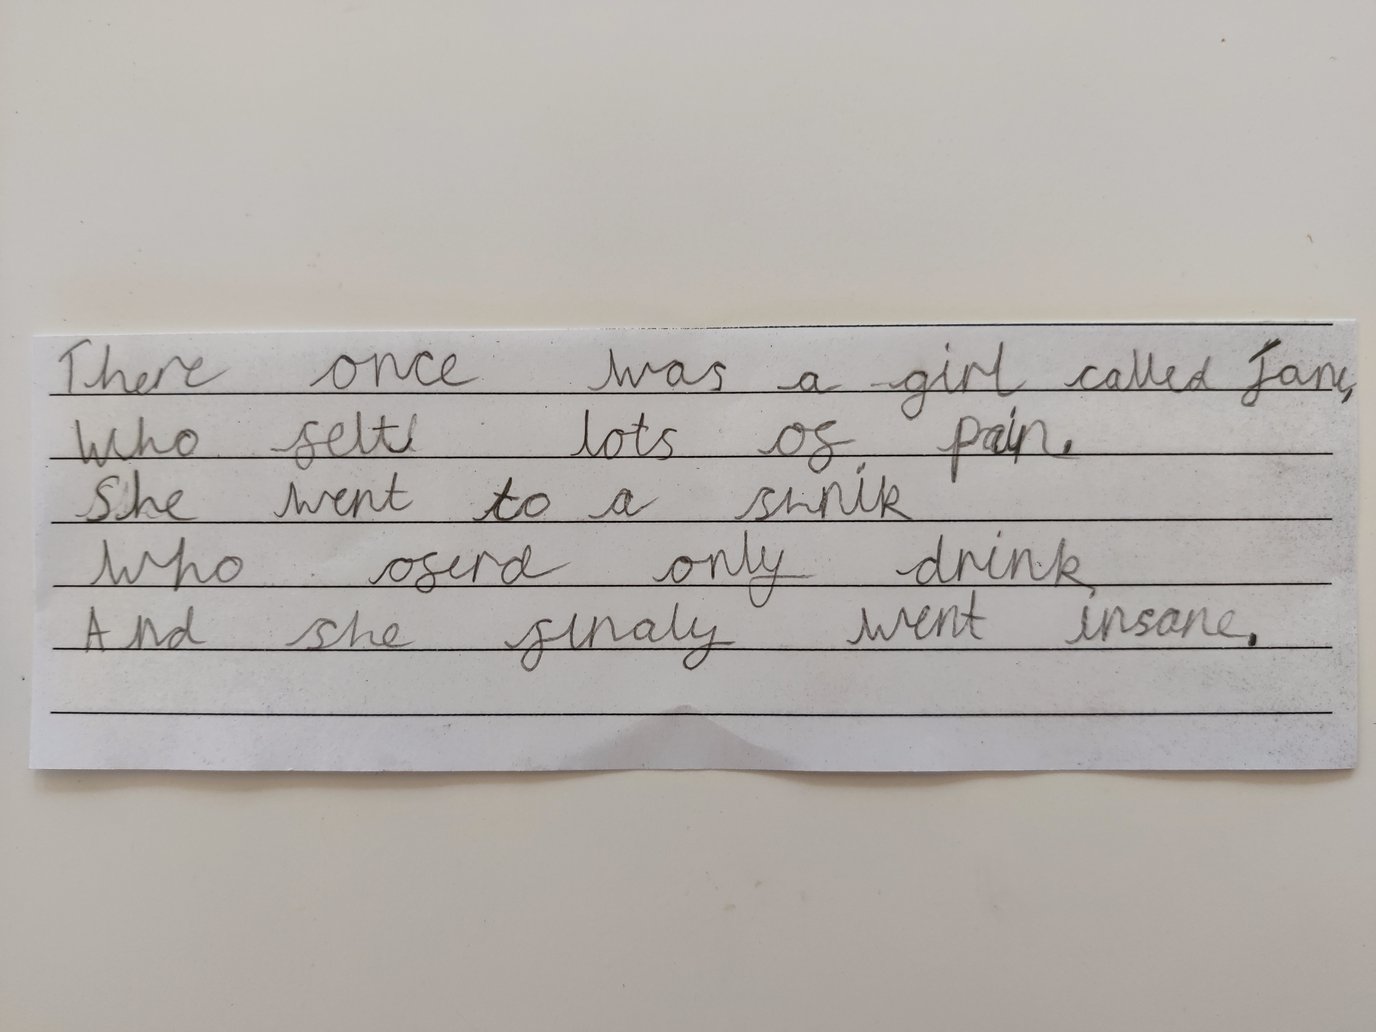 There once was a girl called Jane,
Who felt lots of pain.
She went to a
Who oferd only drink
And she finaly went insane.